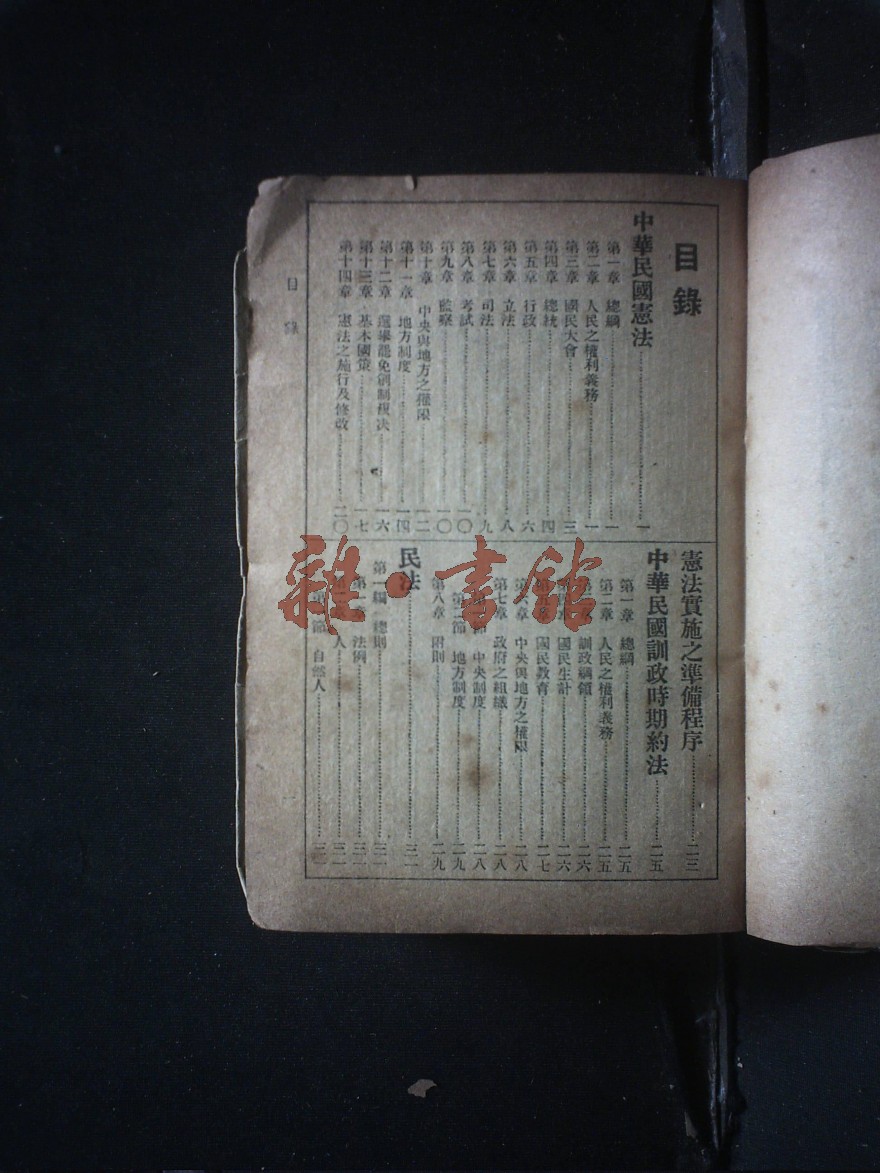 目錄
中華民國憲法……一
第一章 總綱……一
第二章 人民之權利義務……一
第三章 國民大會……三
第四章 總統……四
第五章 行政……六
第六章 立法……八
第七章 司法……九
第八章 考試……一〇
第九章 監察……一〇
第十章 中央與地方之權限……一二
第十一章 地方制度……一四
第十二章 選舉罷免創制複決……一六
第十三章 基本國策……一七
第十四章 憲法之施行及修改……二〇
憲法實施之準備程序……二三
中華民國訓政時期約法……二五
第一章 總綱……二五
第二章 人民之權利義務……二五
訓政綱領……二六
國民生計……二六
國民教育……二七
第六章 中央與地方之權限……二八
第七章 政府之組織……二八
中央制度……二八
第二節 地方制度……二九
第八章 附則……二九
民法……三一
第一編 總則……三一
法例……三一
人……三一
自然人……三一
目錄
一
雜·書館